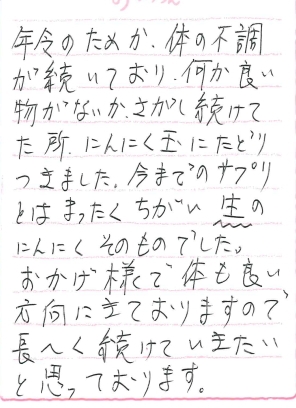 年令のためか、体の不調
が続いており、何か良い
物がないか、さがし続けて
た所、にんにく玉にたどり
つきました。今までのサプリ
とはまったくちがい生の
にんにくそのものでした。
おかげ様で体も良い
方向に立ておりますので
長〜く続けていきたい
と思っております。